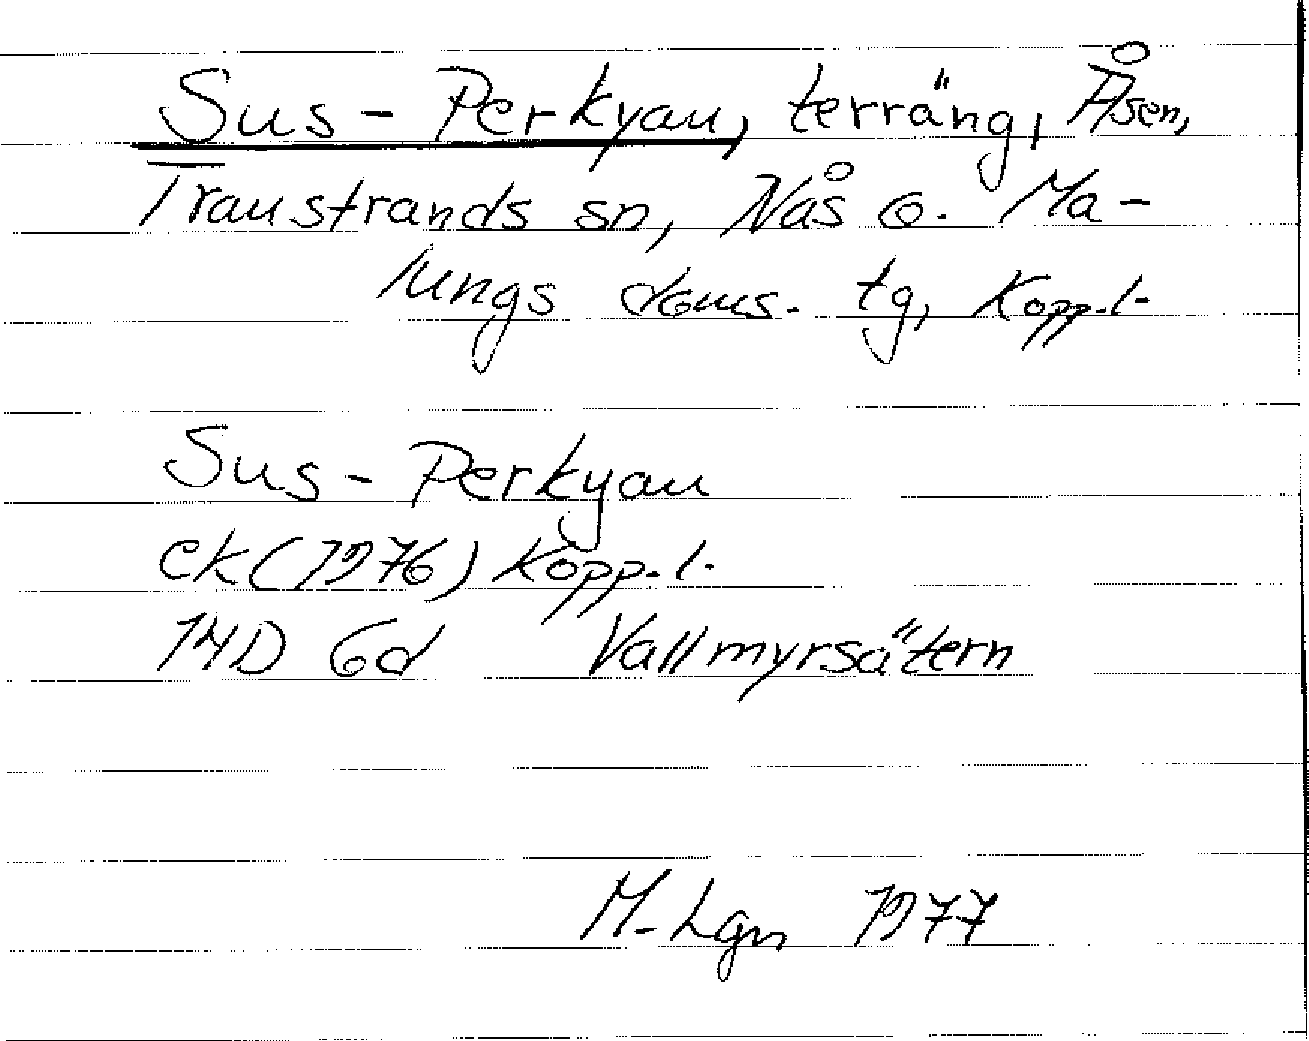 Sus-Perkyan, terräng, Åsen,
Transtrands sn, Nås o. Ma-
lungs doms. tg, Kopp.l.
Sus-Perkyan
ek(1976) Kopp.l.
14D 6d Vallmyrsätern
M-Lgn 1977